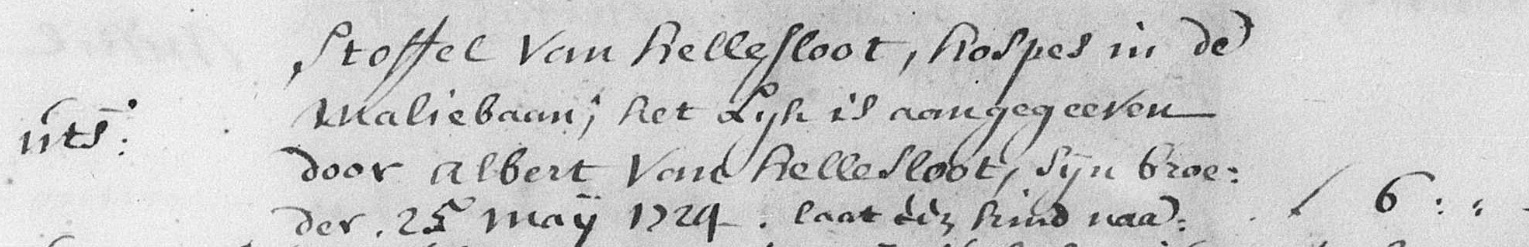 Stoffel Van hellesloot, hospes in de
Maliebaan; het Lijk is aangegeeven
uts:
door Albert Van hellesloot, sijn broe:
der. 25 Maÿ 1724. laat één kind naa: / 6 : :